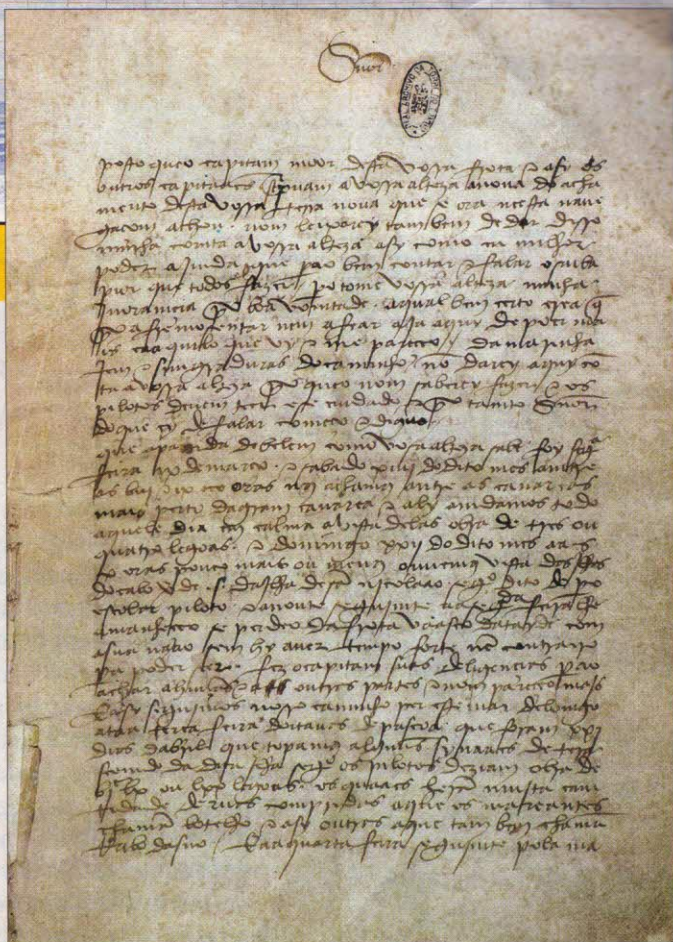 Snor
posto queo capitam moor desta vossa frota e asy os
outros capitaães screpuam a vossa alteza anoua do acha
mento desta vossa terra noua que se ora neesta naue
gaçom achou. nom leixarey tambem de dar disso
minha comta avossa alteza asy como eu milhor
poder ajmda que pera o bem contar e falar o saiba
pior que todos fazer. pero tome vossa alteza minha
jnoramçia por boa vomtade. aqual bem certo crea q̃
por afremosentar nem afear aja aquy de poer ma
is ca aquilo que vy e me pareceo. da marinha
jem e simgraduras do caminho nõ darey aquy cõ
ta a vossa alteza por que o nom saberey fazer e os
pilotos deuem teer ese cuidado e por tamto Snor
do que ey de falar começo e diguo.
que apartida de belem como vosa alteza sabe foy segª
feira ix de março. e sabado xiiij do dito mes amtre
as biij e ix oras nos achamos amtre as canareas
mais perto da gram canarea e aly amdamos todo
aquele dia em calma avista delas obra de tres ou
quatro legoas. e domingo xxij do dito mes aas
x oras pouco mais ou menos ouuemos vista das jlhas
do cabo verde .s. da jlha de sã njcolaao segº dito de pº
escolar piloto. e anoute segujmte aa segª feira lhe
amanheceo se perdeo da frota vaasco datayde com
a sua naao sem hy auer tempo forte nẽ contrairo
pera poder seer. fez o capitam suas deligençias pera o
achar ahuũas e a outras partes e nom pareceo mais
E asy segujmos nosso caminho per este mar delomgo
ataa terça feira doitauas de pascoa que foram xxj
dias dabril que topamos alguũs synaaes de terra
seemdo da dita jlha segº os pilotos deziam obra de
bjᶜ lx ou lxx legoas. os quaaes herã muita cam
tidade deruas compridas aque os mareantes
chamã botelho e asy outras aque tam bem chamã
rrabo dasno. E aa quarta feira segujmte pola ma